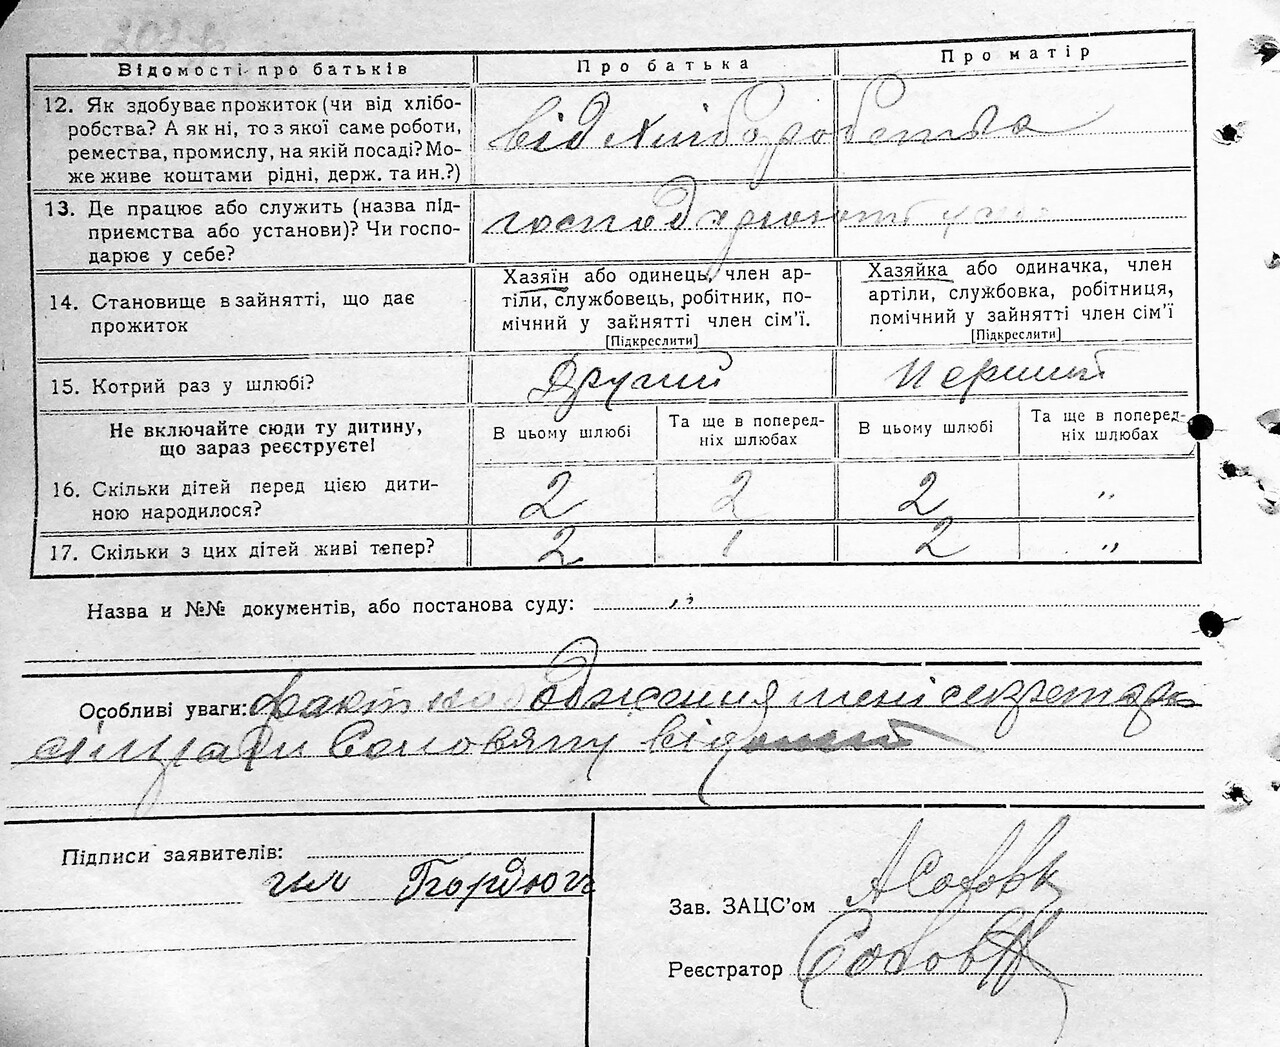 Відомості про батьків
Про батька
Про матір
12. Як здобуває прожиток (чи від хлібо-
робства? А як ні, то з якої саме роботи,
ремества, промислу, на якій посаді? Мо-
же живе коштами рідні, держ. та ин.?)
від хліборобства
13. Де працює або служить (назва під-
приємства або установи)? Чи госпо-
дарює у себе?
14. Становище в зайнятті, що дає
прожиток
Хазяїн або одинець, член ар-
тіли, службовець, робітник, по-
мічний у зайнятті член сім'ї.
[Підкреслити]
Хазяйка або одиначка, член
артіли, службовка, робітниця,
помічний у зайнятті член сім'ї
[Підкреслити]
15. Котрий раз у шлюбі?
Другий
Перший
Не включайте сюди ту дитину,
що зараз реєструєте!
В цьому шлюбі
Та ще в поперед-
ніх шлюбах
В цьому шлюбі
Та ще в поперед-
ніх шлюбах
16. Скільки дітей перед цією дити-
ною народилося?
2
2
2
"
17. Скільки з цих дітей живі тепер?
2
1
2
"
Назва и №№ документів, або постанова суду: "
Особливі уваги: факт народження мені секретарю
сільради
Підписи заявителів:
Зав. ЗАЦС'ом
Реєстратор